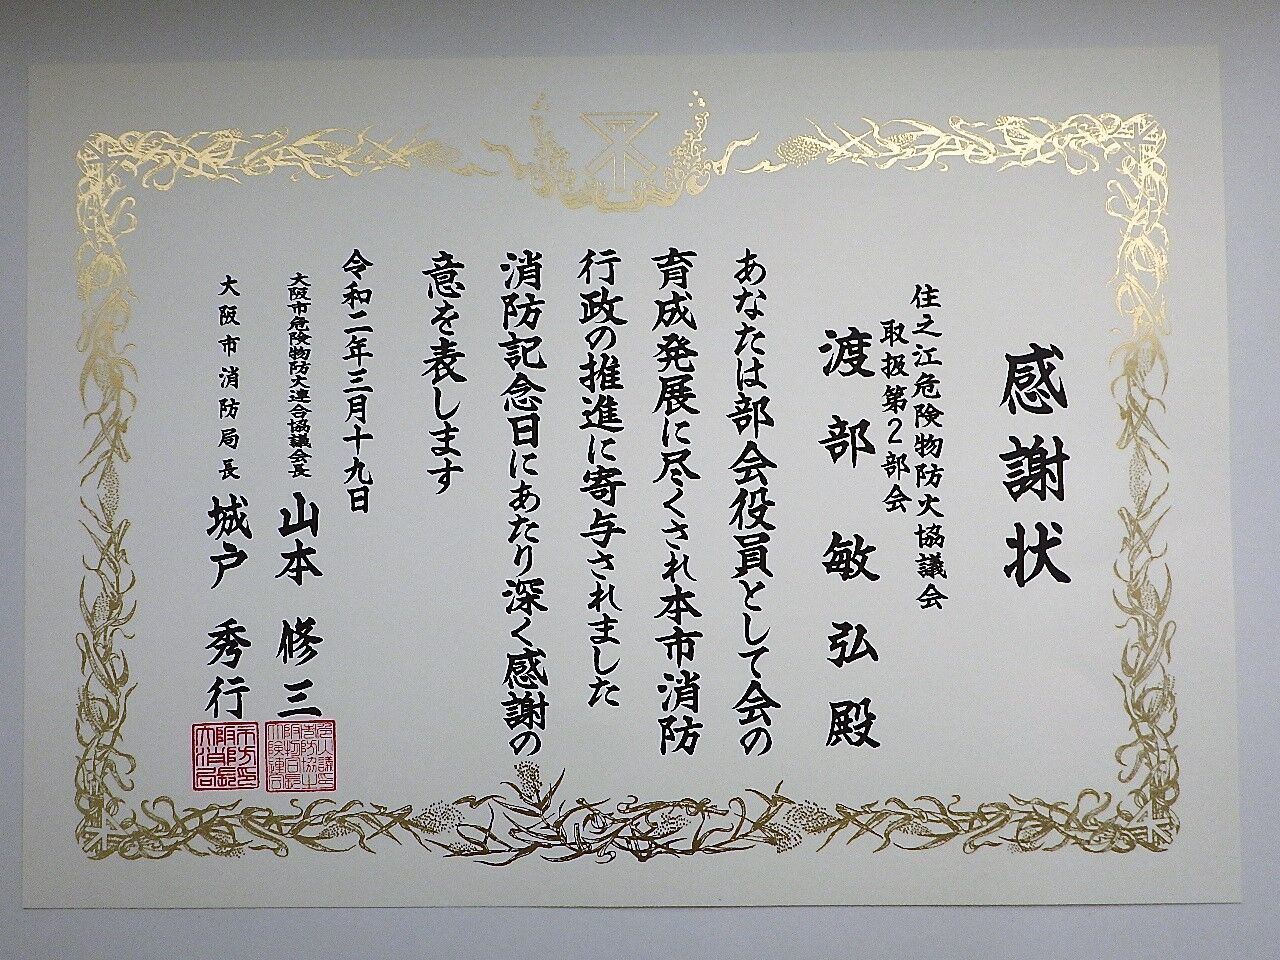 感謝状
住之江危険物防火協議会
取扱第2部会
渡部敏弘殿
あなたは部会役員として会の
育成発展に尽くされ本市消防
行政の推進に寄与されました
消防記念日にあたり深く感謝の
意を表します
令和二年三月十九日
大阪市危険物防火連合協議会長 山本 修三
大阪市消防局長 城戸 秀行